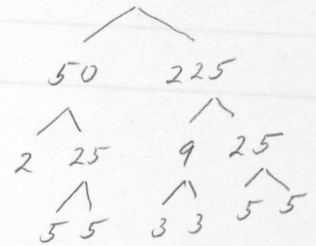 50 225
2 25 9 25
5 5 3 3 5 5